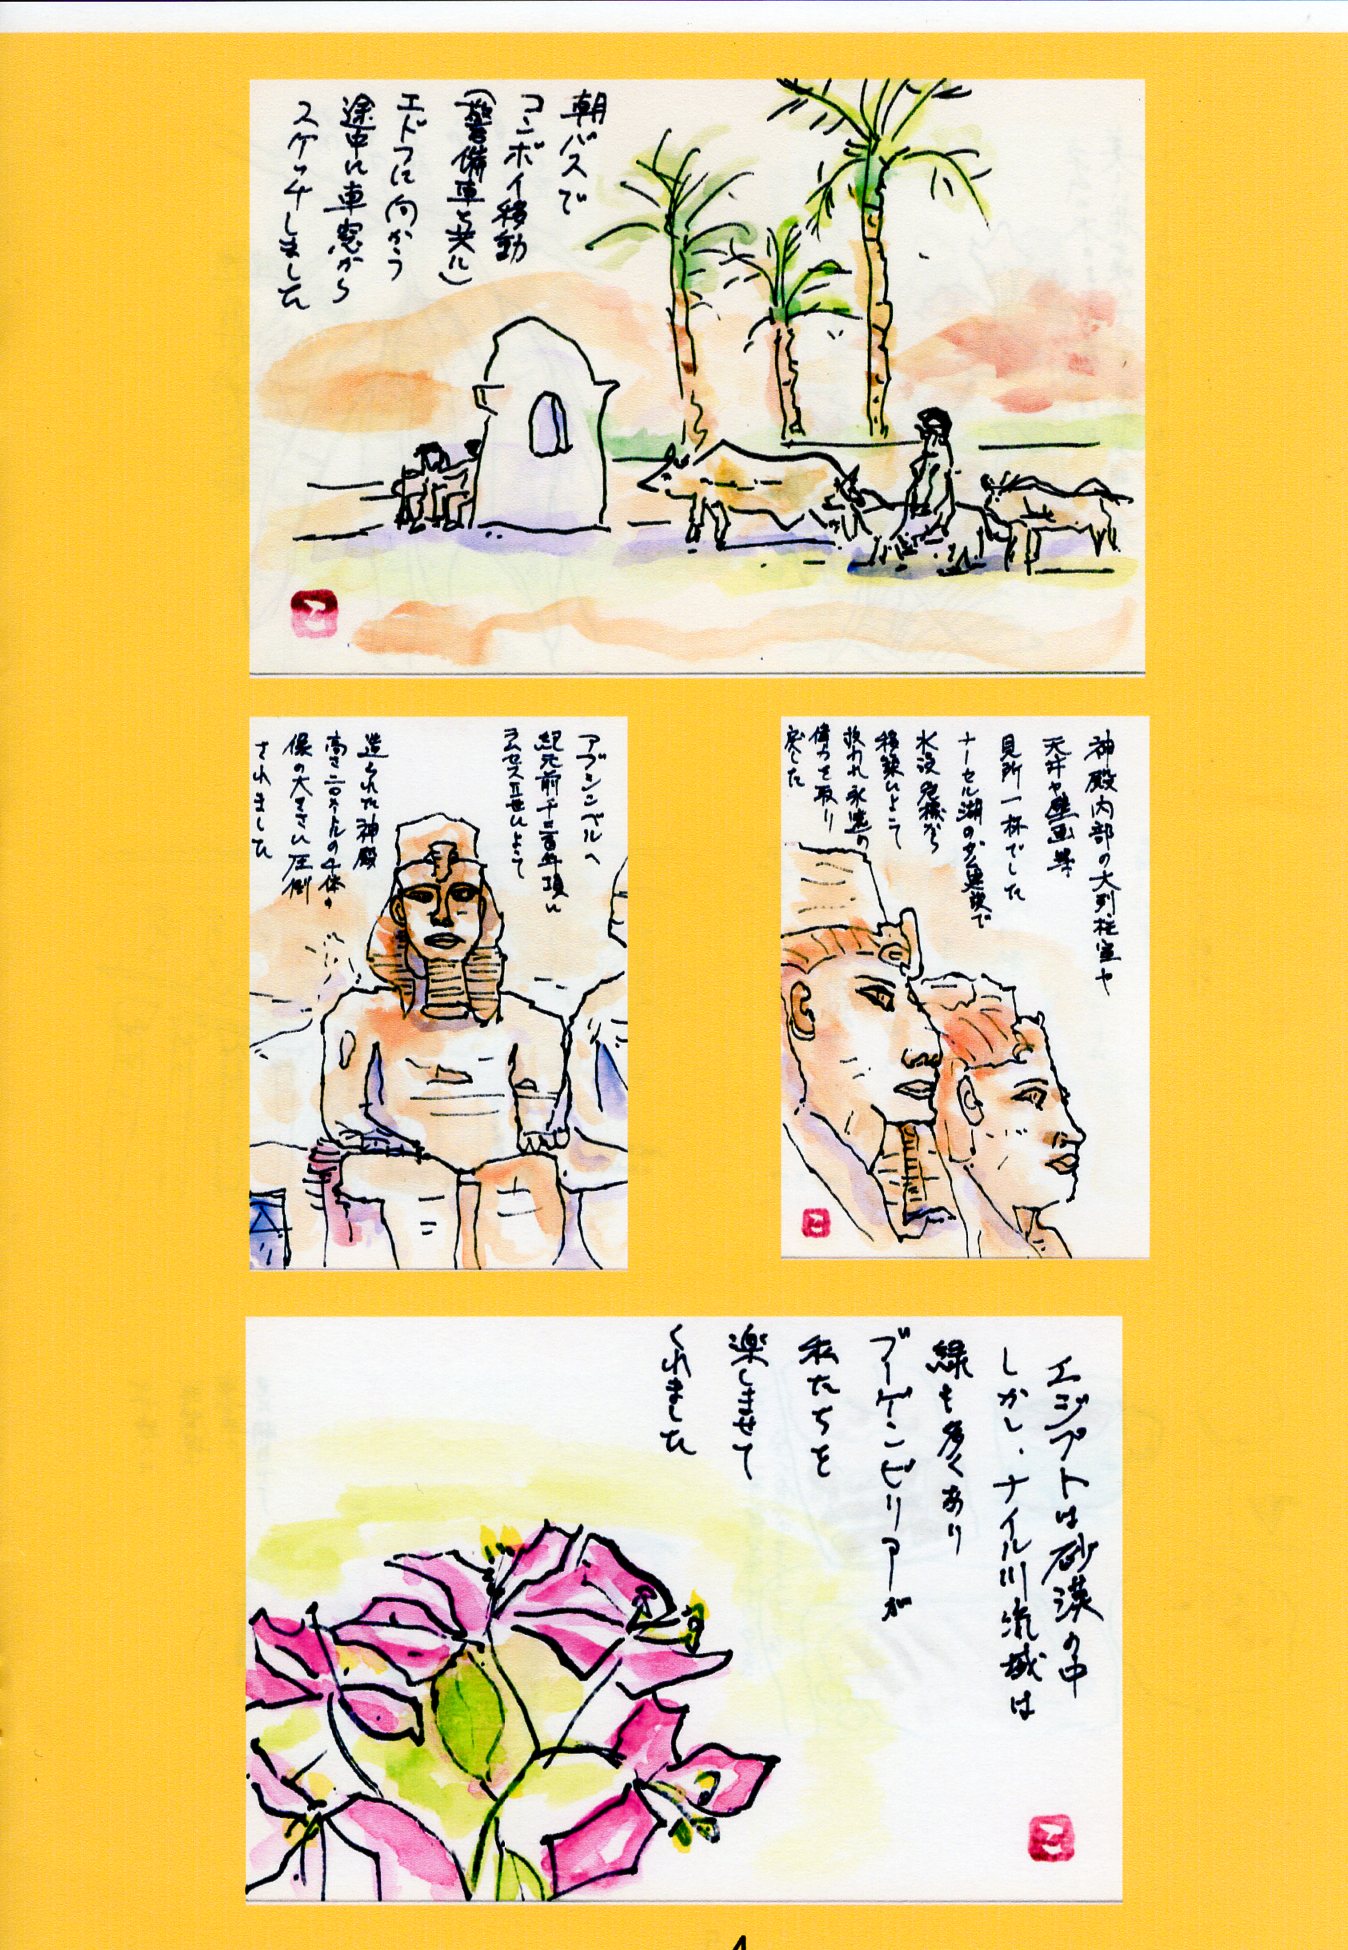 朝バスで
コンボイ移動
(警備車と共に)
エドフに向かう
途中に車窓から
スケッチしました
アブシンベルへ
紀元前千三百年頃に
ラムセスⅡ世によって
造られた神殿
高さ二〇メートルの4体の
像の大きさに圧倒
されました
神殿内部の大列柱室や
天井や壁画等
見所一杯でした
ナーセル湖のダム建設で
水没危機から
移築によって
救われ永遠の
偉力を取り
戻した
エジプトは砂漠の中
しかし、ナイル川流域は
緑も多くあり
ブーゲンビリアーが
私たちを
楽しませて
くれました